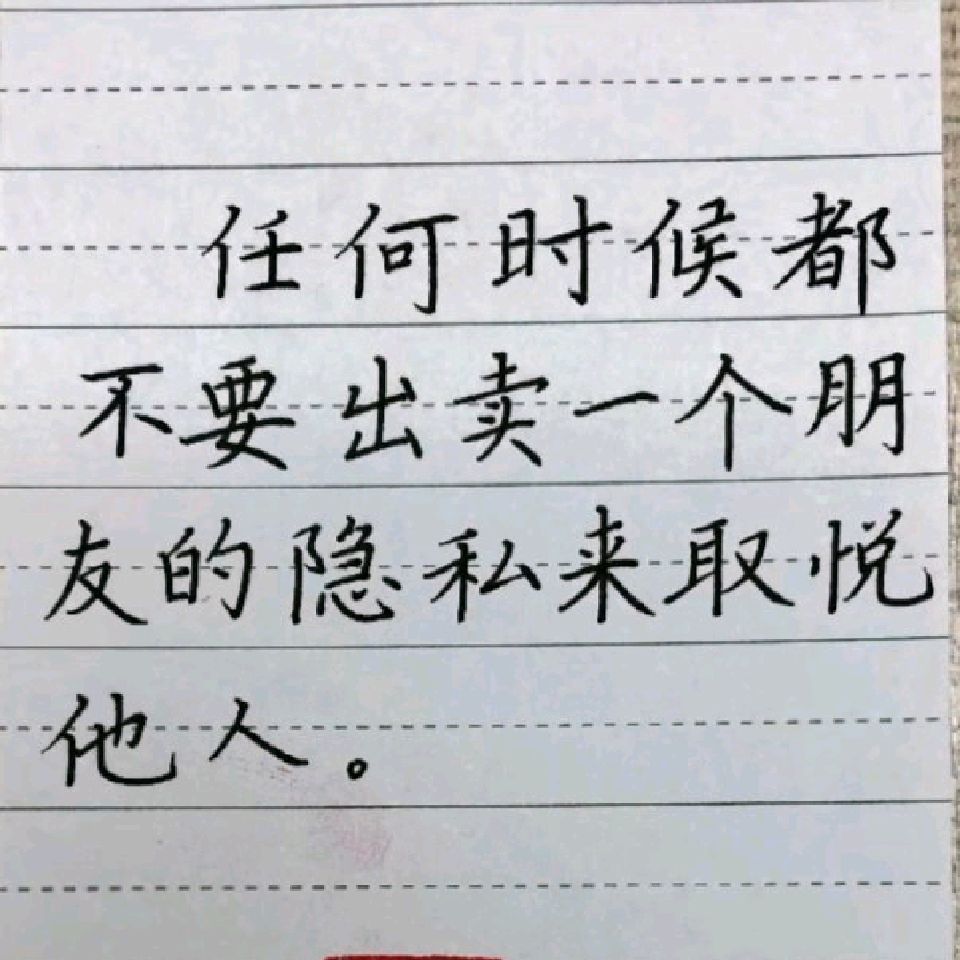 任何时候都
不要出卖一个朋
友的隐私来取悦
他人。